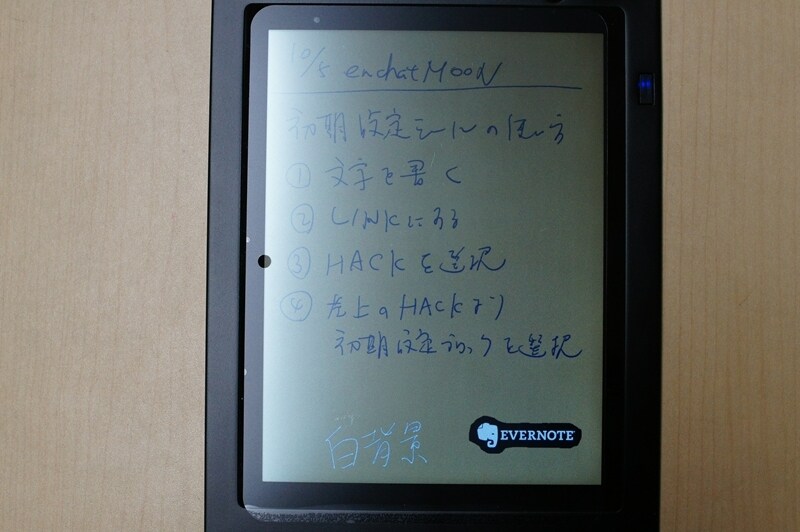 10/5 enchatMOON
初期設定シールの使い方
① 文字を書く
② LINKにする
③ HACKを選択
④ 左上のHACKより
初期設定ブロックを選択
白背景
EVERNOTE